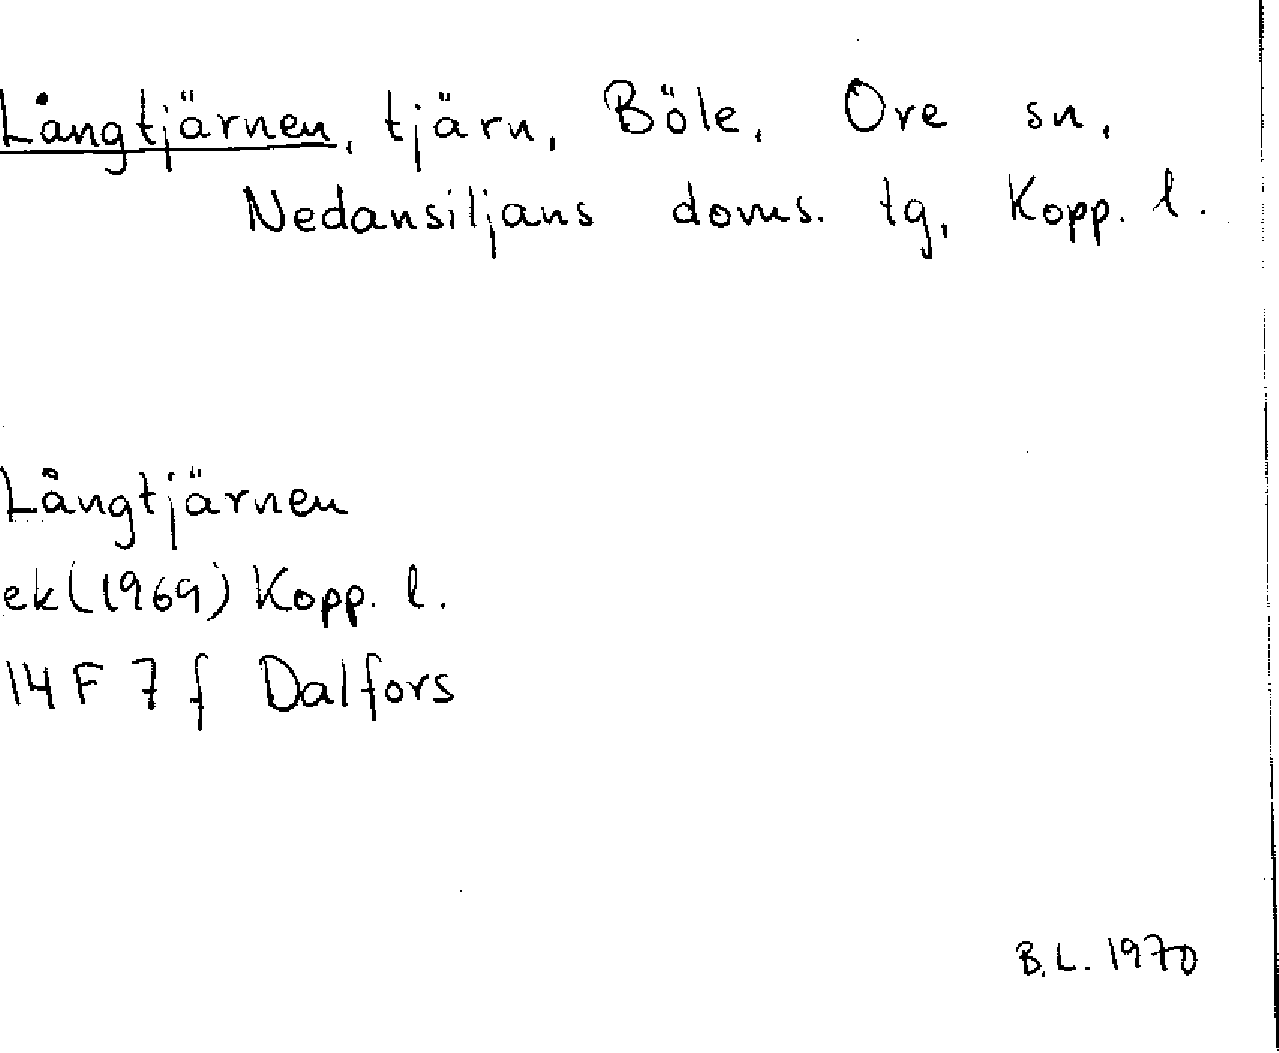 Långtjärnen, tjärn, Böle, Ore sn,
Nedansiljans doms. tg, Kopp. l.
Långtjärnen
ek(1969) Kopp. l.
14 F 7 f Dalfors
B.L. 1970